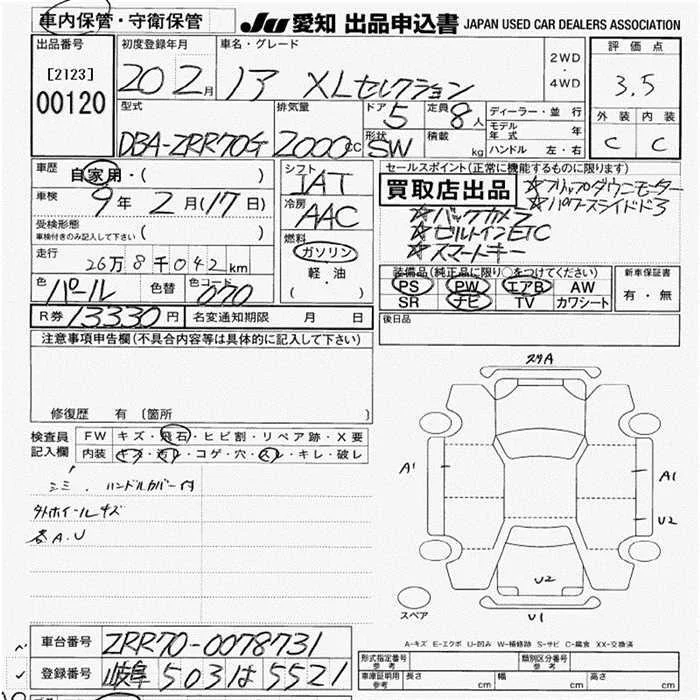 車内保管・守衛保管
JU 愛知 出品申込書 JAPAN USED CAR DEALERS ASSOCIATION
出品番号 [2123] 00120
初度登録年月 20 2月
車名・グレード 13 XLセレクション
2WD・4WD
評価点 3.5
外装 C 内装 C
型式 DBA-ZRR70G
排気量 2000cc
ドア 5
定員 8人
形状 SW
積載 kg
ディーラー・並行
モデル年式 年
ハンドル 左・右
車歴 自家用・( )
車検 9年 2月(17日)
受検形態 車検付きのみ記入して下さい ( )
走行 26万8千042km
色 パール 色替 色コード 070
シフト IAT
冷房 AAC
燃料 ガソリン 軽油 ( )
セールスポイント(正常に機能するものに限ります)
買取店出品
☆フリップダウンモーター
☆パワースライドド
☆バックカメラ
☆ビルトインETC
☆スマートキー
装備品(純正品に限り○をつけてください)
PS PW エアB AW
SR ナビ TV カワシート
新車保証書 有・無
R券 13330円 名変通知期限 月 日
後日品
注意事項申告欄(不具合内容等は具体的に記入して下さい)
修復歴 有 〔箇所 〕
検査員記入欄
FW キズ・飛石・ヒビ割・リペア跡・X要
内装 キズ・汚レ・コゲ・穴・スレ・キレ・破レ
シミ. ハンドルカバー付
外ホイールキズ
各A.U
A1
A1
U2
U2
U1
スペア
A-キズ E-エクボ U-凹み W-補修跡 S-サビ C-腐食 XX-交換済
車台番号 ZRR70-0078731
登録番号 岐阜 503 は 5521
形式指定番号 参考
類別区分番号 参考
車庫証明用 参考 長さ cm 幅 cm 高さ cm